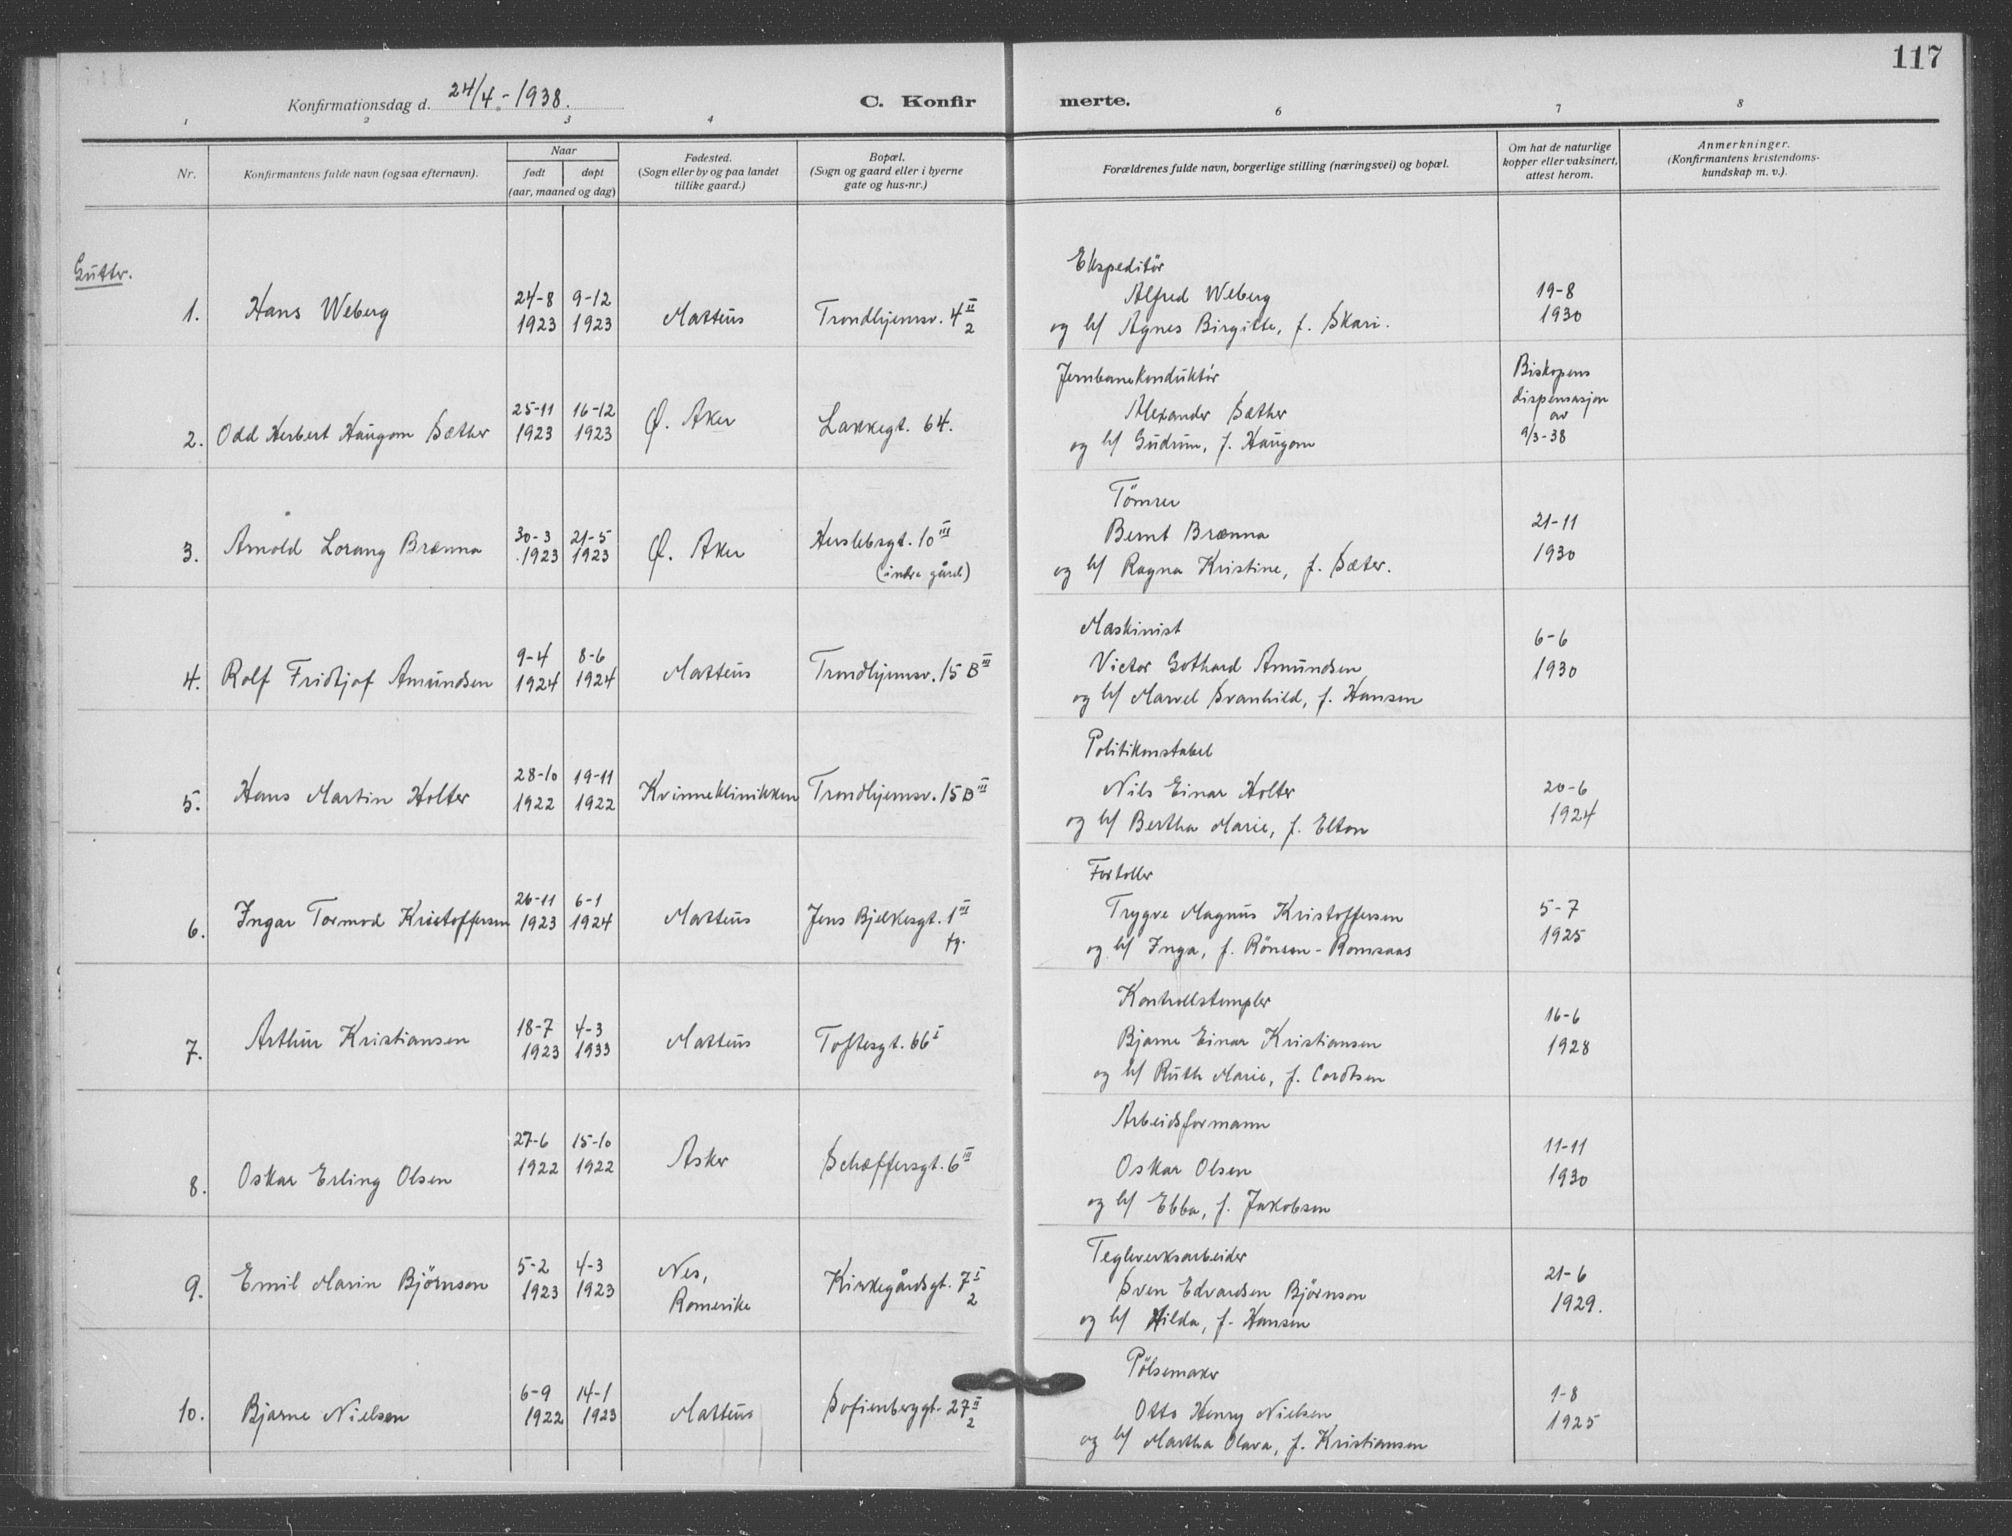 117
Konfirmationsdag d. 24/4.-1938.
C. Konfir merte.
1 2 3 4 6 7 8
Nr.
Konfirmantens fulde navn (ogsaa efternavn).
Naar
født døpt
(aar, maaned og dag)
Fødested.
(Sogn eller by og paa landet
tillike gaard.)
Bopæl.
(Sogn og gaard eller i byerne
gate og hus-nr.)
Forældrenes fulde navn, borgerlige stilling (næringsvei) og bopæl.
Om hat de naturlige
kopper eller vaksinert,
attest herom.
Anmerkninger.
(Konfirmantens kristendoms-
kundskap m. v.).
Gutter.
1. Hans Weberg
24-8 1923
9-12 1923
Matteus
Trondhjemsv. 4 II 2
Ekspeditør
Alfred Weberg
og h/ Agnes Birgitte, f. Skari.
19-8
1930
2. Odd Herbert Haugom Sæther
25-11 1923
16-12 1923
Ø. Aker
Lakkegt. 64.
Jernbanekonduktör
Alexander Sæther
og h/ Gudrun, f. Haugom
Biskopens
dispensasjon
av
9/3-38
3. Arnold Lorang Brænna
30-3 1923
21-5 1923
Ø. Aker
Herslebsgt. 10 III
(indre gård)
Tömrer
Bernt Brænna
og h/ Ragna Kristine, f. Sæter.
21-11
1930
4. Rolf Fridtjof Amundsen
9-4 1924
8-6 1924
Matteus
Trondhjemsv. 15 B III
Maskinist
Victor Gothard Amundsen
og h/ Marvel Svanhild, f. Hansen
6-6
1930
5. Hans Martin Holter
28-10 1922
19-11 1922
Kvinneklinikken
Trondhjemsv. 15 B III
Politikonstabel
Nils Einar Holter
og h/ Bertha Marie, f. Elton
20-6
1924
6. Ingar Tormod Kristoffersen
26-11 1923
6-1 1924
Matteus
Jens Bjelkesgt. 1 III
fg.
Fortoller
Trygve Magnus Kristoffersen
og h/ Inga, f. Rönsen-Romsaas
5-7
1925
7. Arthur Kristiansen
18-7 1923
4-3 1933
Matteus
Toftesgt. 66 I
Kontrollstempler
Bjarne Einar Kristiansen
og h/ Ruth Marie, f. Cordtsen
16-6
1928
8. Oskar Erling Olsen
27-6 1922
15-10 1922
Asker
Schæffersgt. 6 III
Arbeidsformann
Oskar Olsen
og h/ Ebba, f. Jakobsen
11-11
1930
9. Emil Marin Björnson
5-2 1923
4-3 1923
Nes,
Romerike
Kirkegårdsgt. 7 I 2
Teglverksarbeider
Sven Edvardsen Björnson
og h/ Hilda, f. Hansen
21-6
1929.
10. Bjarne Nielsen
6-9 1922
14-1 1923
Matteus
Sofienberggt. 27 II 2
Pölsemaker
Otto Henry Nielsen
og h/ Martha Olava, f. Kristiansen
1-8
1925